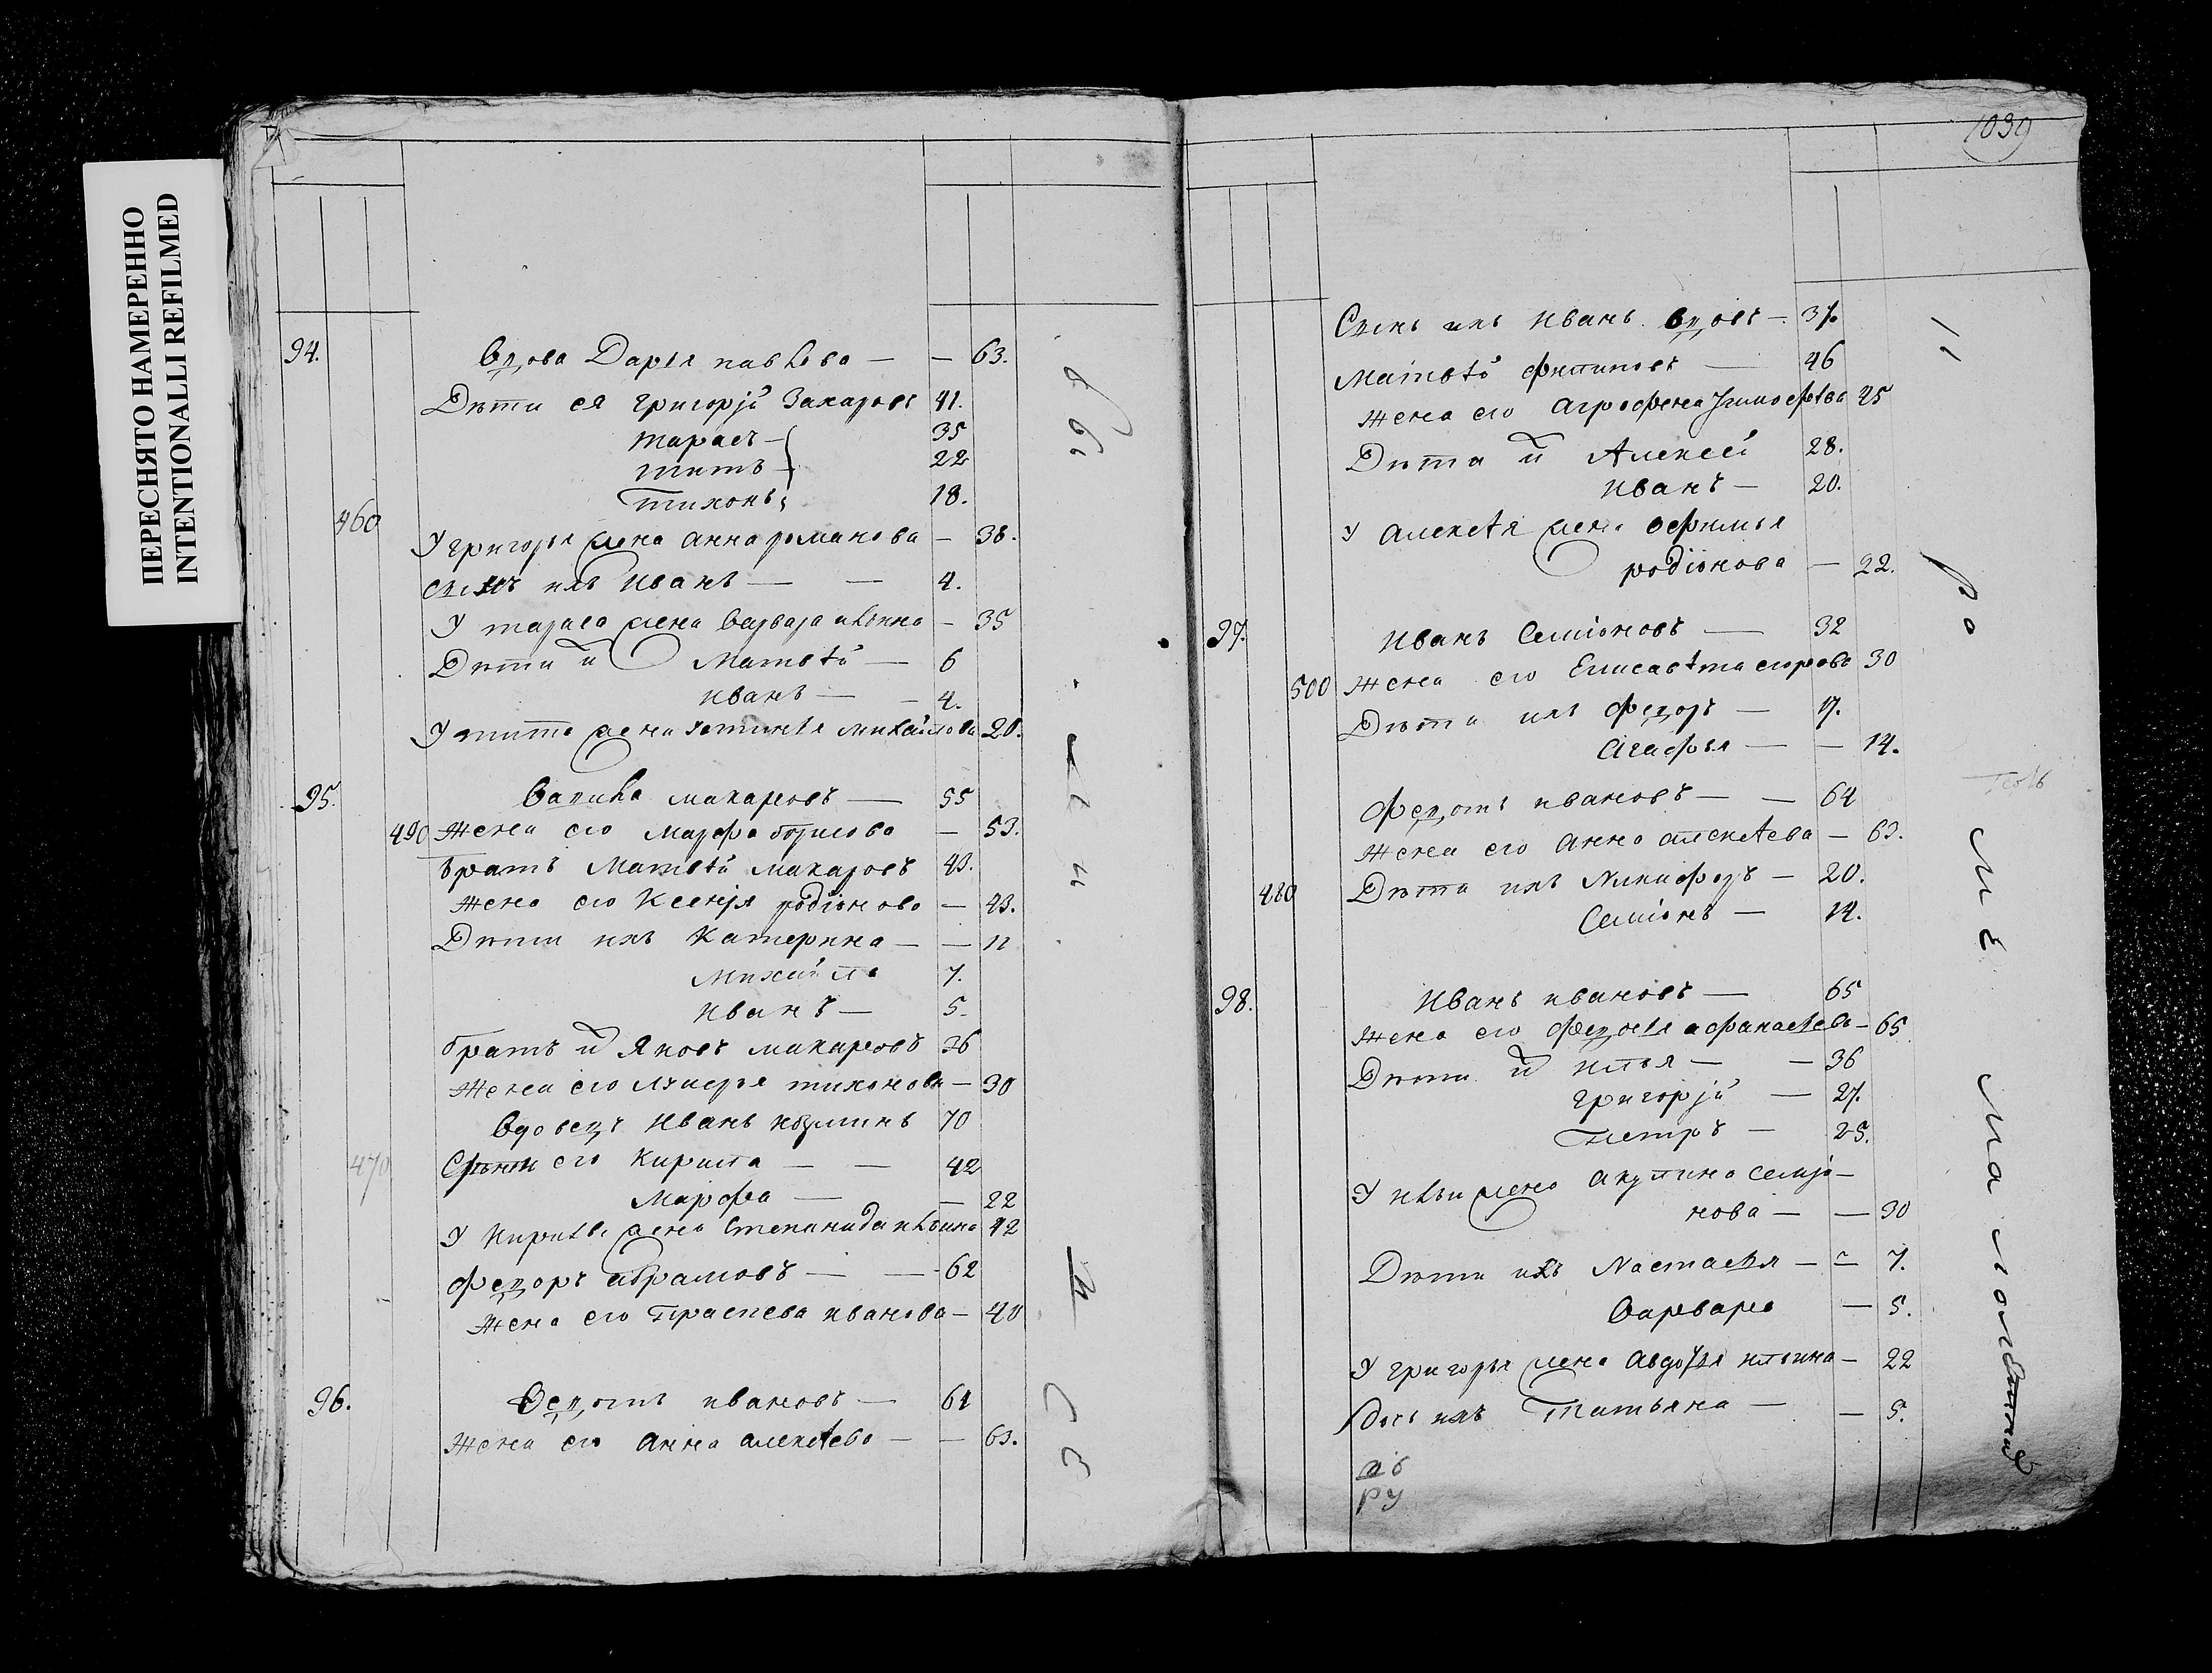 ПЕРЕСНЯТО НАМЕРЕННО
INTENTIONALLI REFILMED
94. Вдова Дарья павлова — — 63.
Дѣти ея григорjй Захаровъ 41.
тарасъ — 35
титъ — 22
тихонъ 18.
460
У григорья жена анна романова — 38.
сынъ ихъ Иванъ — — 4.
У тараса жена варвара ильина — 35
Дѣти и Матвѣй — 6
иванъ — — 4.
У тита жена устинья михайлова 20.
95. Вавила макаровъ — 55
490 жена его марфа борисова — 53.
братъ Матвѣй макаровъ 43.
жена его Ксенjя родiонова — 43.
Дѣти ихъ Катерина — — 11
михайла 7.
иванъ — 5.
братъ и Яковъ макаровъ 36
жена его лукерья тихонова — 30
Вдовецъ Иванъ кузминъ 70
470 его Кирила — — 42
Марфа — — 22
У Кирилы жена степанида ильина 42
федоръ абрамовъ — — 62
жена его Прасковья иванова — 40
96. Федотъ ивановъ — 61
жена его анна алексѣева — — 63.
1039
Сынъ ихъ иванъ вдовъ — 37.
Матвѣй филиповъ — 46
жена его аграфена тимофѣева 25
Дѣти и Алексей 28.
иванъ — 20.
У алексѣя жена офимья
родiонова — 22.
97. иванъ Семiоновъ — 32
500 жена его Елисавѣта егорова 30
Дѣти ихъ федоръ — 17.
агафья — — 14.
федотъ ивановъ — — 64
жена его анна алексѣева — 63.
480 Дѣти ихъ Никифоръ — 20.
Семiонъ — 14.
98. иванъ ивановъ — 65
жена его федосья афанасьева — 65
Дѣти и илья — — 36
григорjй — 27.
Петръ — 25.
У ильи жена акулина семjо-
нова — — 30
Дѣти ихъ Настасья — — 7.
Варвара — 5.
У григорья жена авдотья ильина — 22
дочь ихъ Татьяна — — 5.